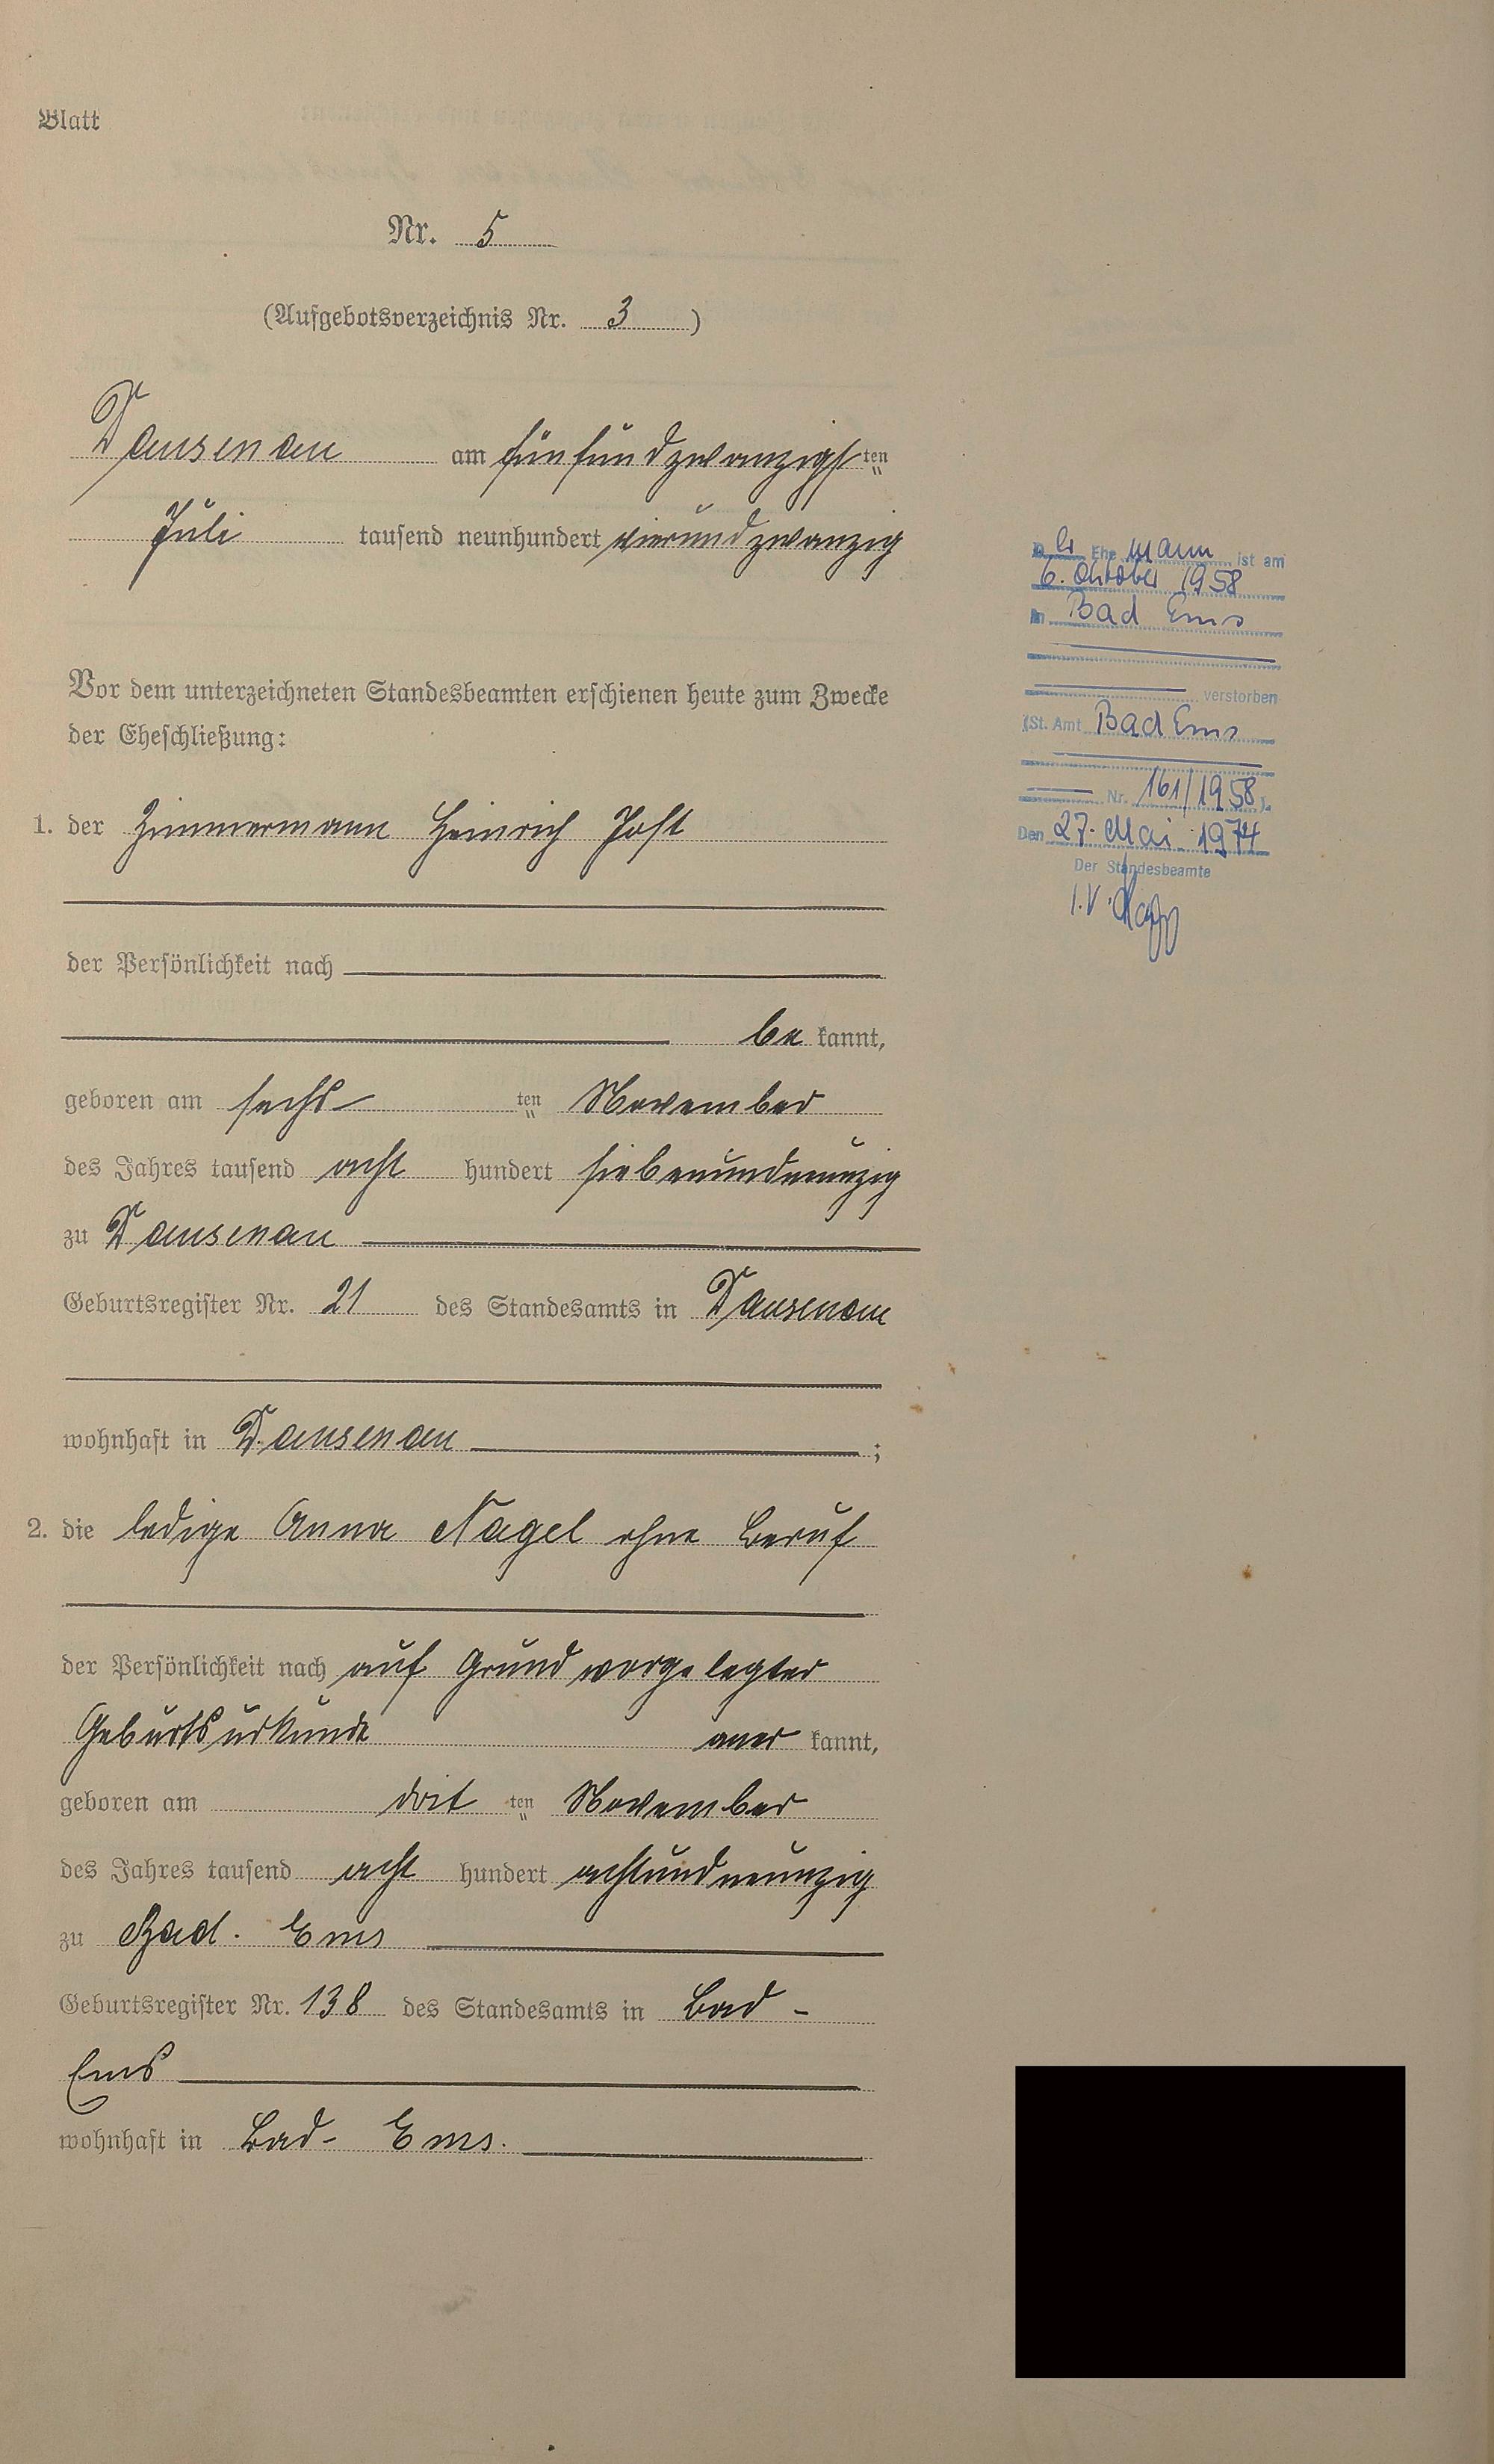 Blatt
Nr. 5
(Aufgebotsverzeichnis Nr. 3)
Dausenau am fünfundzwanzigsten
Juli tausend neunhundert vierundzwanzig
Vor dem unterzeichneten Standesbeamten erschienen heute zum Zwecke
der Eheschließung:
1. der Zimmermann Heinrich Jost
der Persönlichkeit nach
bekannt,
geboren am sechsten November
des Jahres tausend acht hundert siebenundneunzig
zu Dausenau
Geburtsregister Nr. 21 des Standesamts in Dausenau
wohnhaft in Dausenau ;
2. die ledige Anna Nagel ohne Beruf
der Persönlichkeit nach auf Grund vorgelegter
Geburtsurkunde anerkannt,
geboren am dritten November
des Jahres tausend acht hundert achtundneunzig
zu Bad. Ems
Geburtsregister Nr. 138 des Standesamts in Bad-
Ems
wohnhaft in Bad- Ems.
Der Ehemann ist am
6. Oktober 1958
in Bad Ems
verstorben
(St. Amt Bad Ems
Nr. 161/1958).
Den 27. Mai 1974
Der Standesbeamte
I.V.